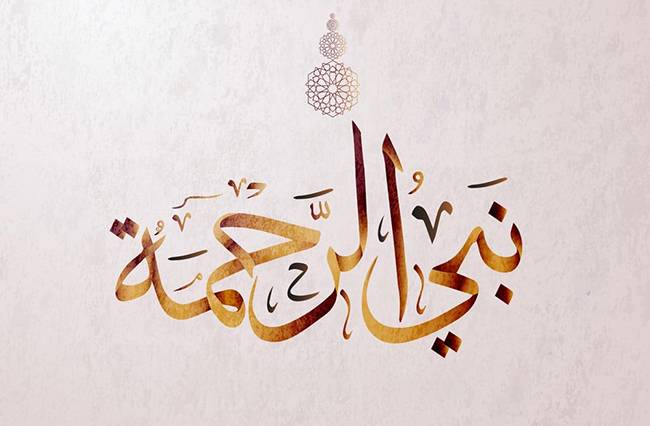 نَبيُ الرَّحمَةُ